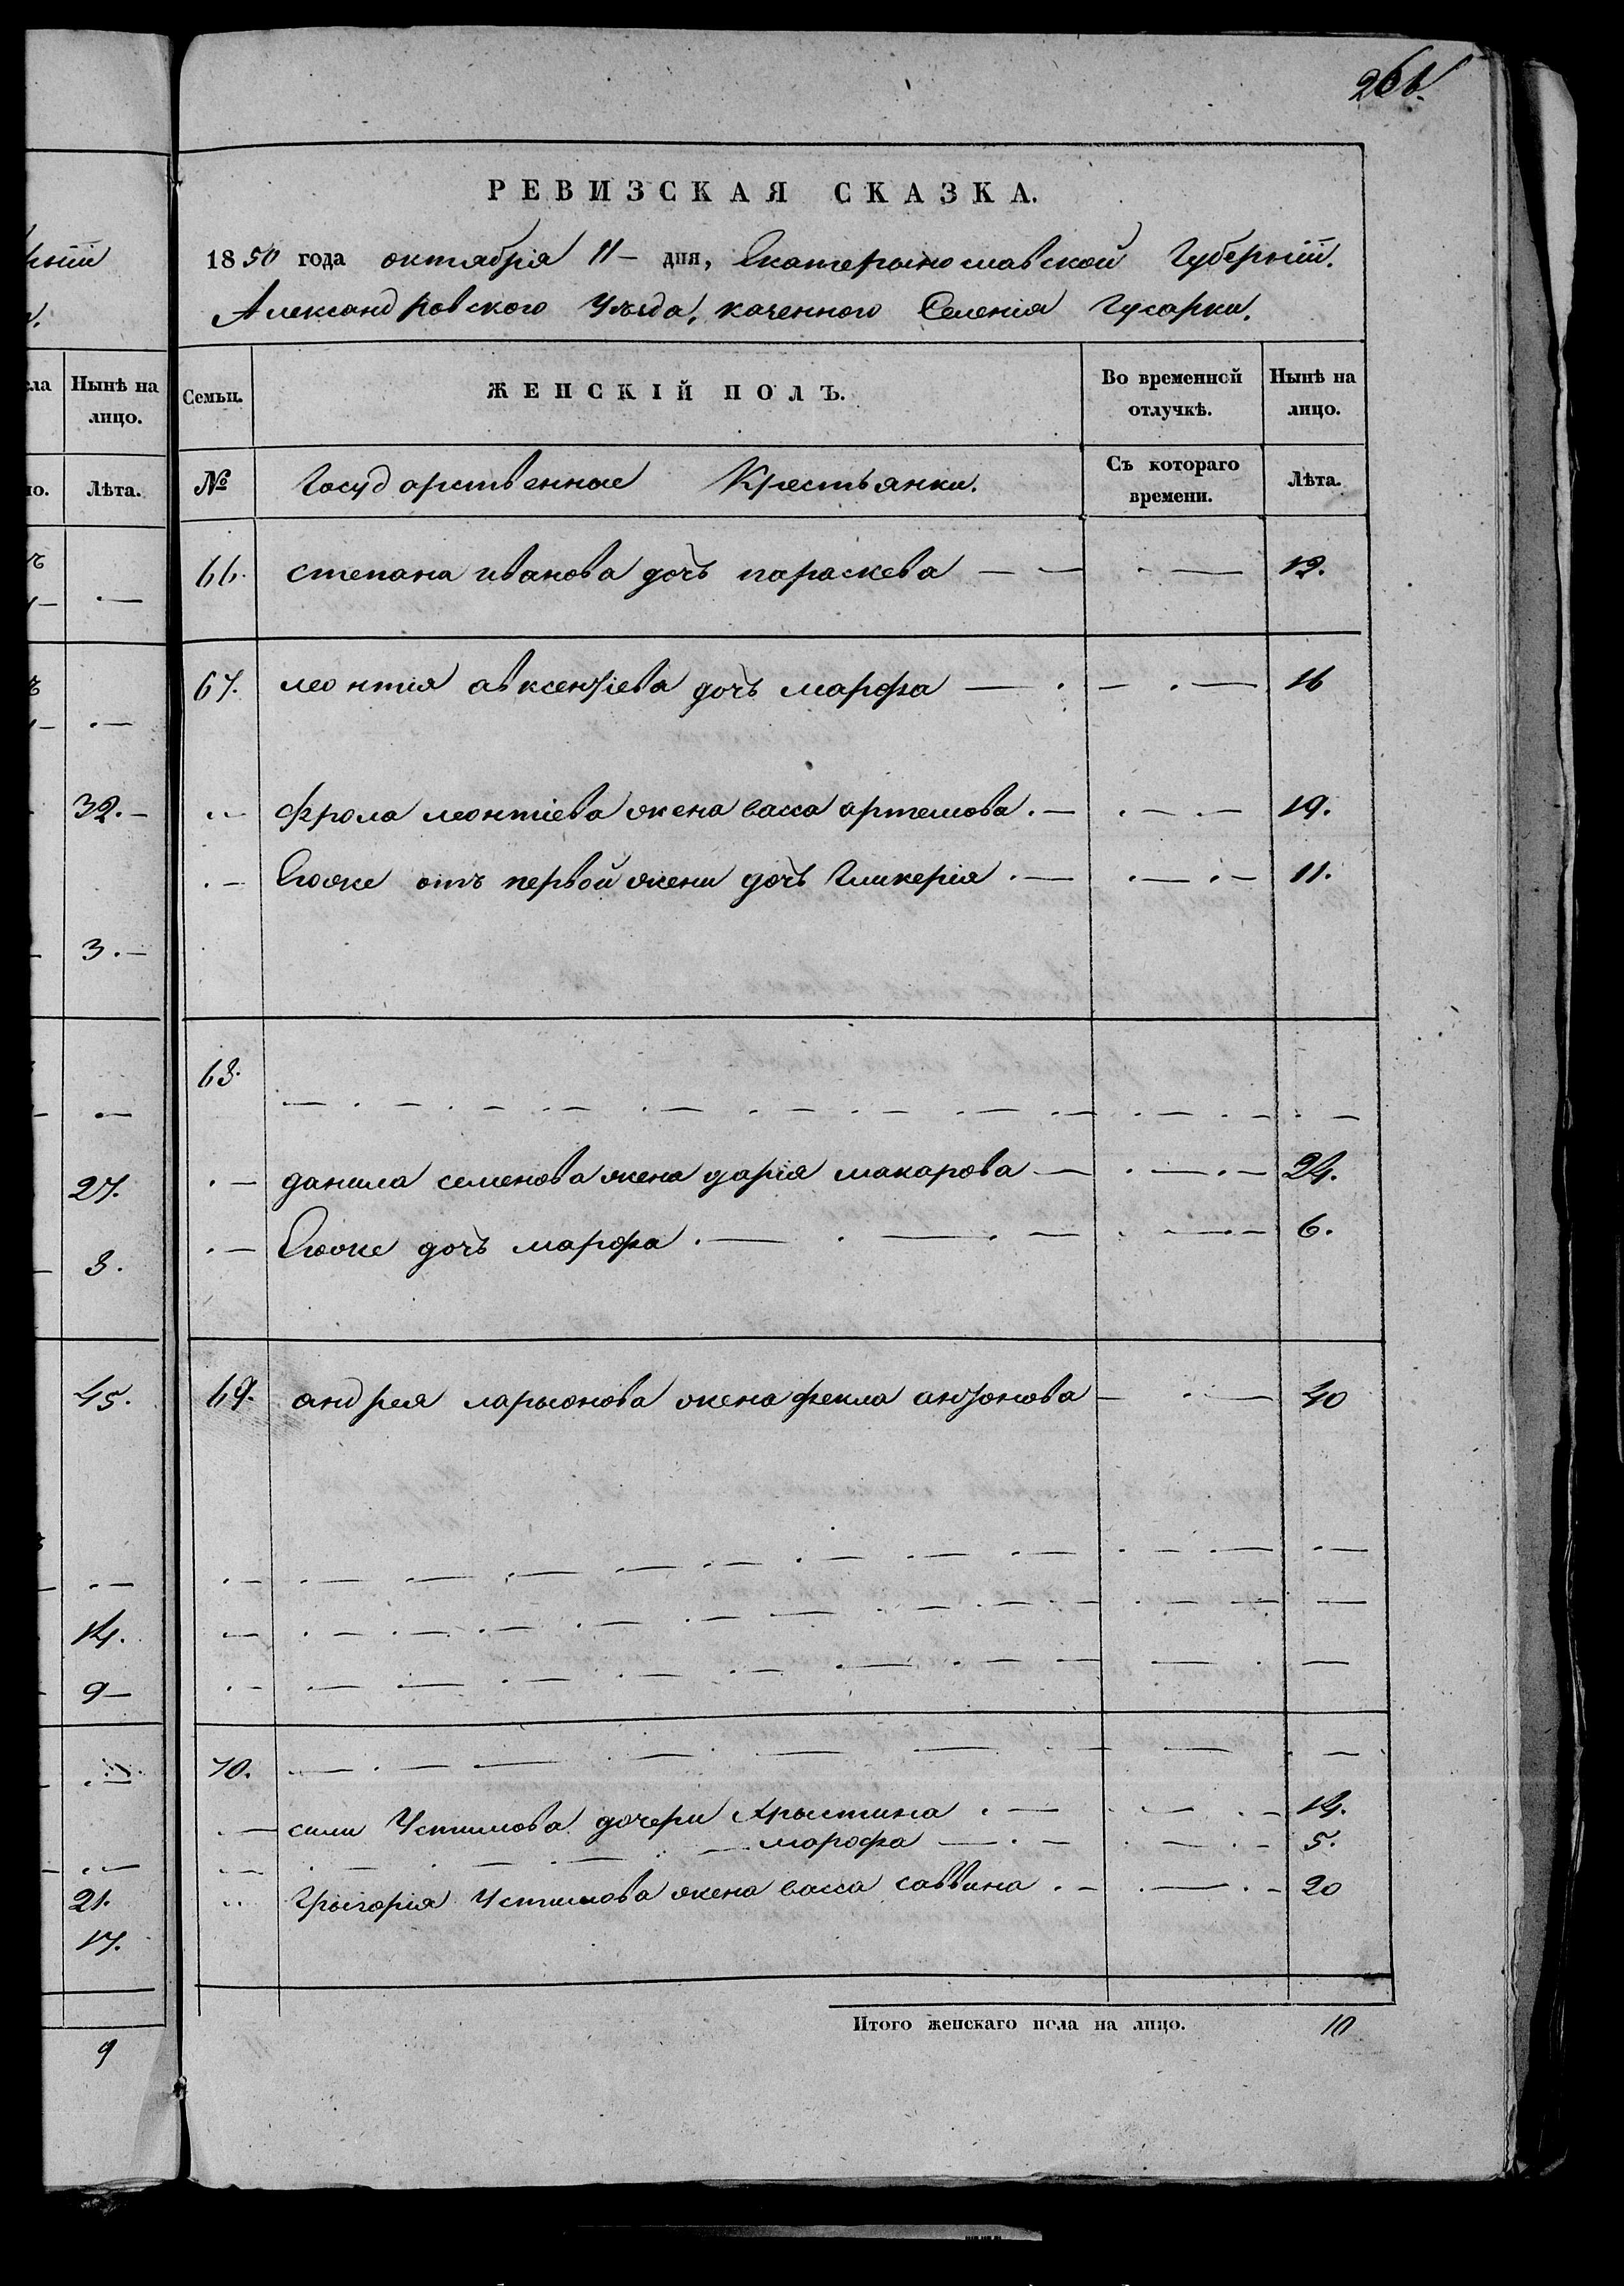 261.
РЕВИЗСКАЯ СКАЗКА.
1850 года октабрія 11 – дня, Екатерынославской Губерніи.
Александровского Уѣзда, казенного Селенія Гусарки.
Нынѣ на лицо.
Семьи.
ЖЕНСКІЙ ПОЛЪ.
Во временной отлучкѣ.
Нынѣ на лицо.
Лѣта.
№
Государственные Крестьянки.
Съ котораго времени.
Лѣта.
66. степана иванова дочь параскева — — . — 12.
67. леонтія авксентіева дочь марфа — . — . — 16
32. —
„ — фрола леонтіева жена васса артемова . — . — . — 19.
. — Егоже отъ первой жени дочь Гликерія . — . — . — 11.
3. —
68. — . — . — . — . — . — . — . —
27.
. — данила семенова жена дарія макарова — . — . — 24.
3.
. — Егоже дочь марфа . — . — . — . — . — 6.
45.
69. андрея ларыонова жена фекла антонова — . — 40
14.
9 —
70. — . — . — . — . — . —
. — сили Устимова дочери Хрыстина . — . — . — 14.
. — . — . — . — марфа — . — . — . — 5.
21.
„ Грыгорія Устимова жена васса саввина . — . — . — 20
17.
Итого женскаго пола на лицо. 10
9